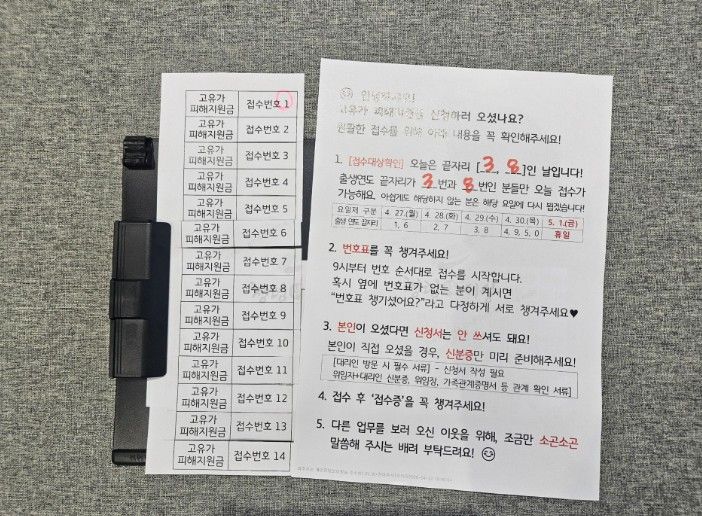 고유가
피해지원금 접수번호 1
고유가
피해지원금 접수번호 2
고유가
피해지원금 접수번호 3
고유가
피해지원금 접수번호 4
고유가
피해지원금 접수번호 5
고유가
피해지원금 접수번호 6
고유가
피해지원금 접수번호 7
고유가
피해지원금 접수번호 8
고유가
피해지원금 접수번호 9
고유가
피해지원금 접수번호 10
고유가
피해지원금 접수번호 11
고유가
피해지원금 접수번호 12
고유가
피해지원금 접수번호 13
고유가
피해지원금 접수번호 14
고유가 피해지원금 신청하러 오셨나요?
원활한 접수를 위해 아래 내용을 꼭 확인해주세요!
1. [접수대상확인] 오늘은 끝자리 [ 3, 8 ]인 날입니다!
출생연도 끝자리가 3번과 8번인 분들만 오늘 접수가
가능해요. 아쉽게도 해당하지 않는 분은 해당 요일에 다시 뵙겠습니다!
요일제 구분 4. 27.(월) 4. 28.(화) 4. 29.(수) 4. 30.(목) 5. 1.(금)
출생 연도 끝자리 1, 6 2, 7 3, 8 4, 9, 5, 0 휴일
2. 번호표를 꼭 챙겨주세요!
9시부터 번호 순서대로 접수를 시작합니다.
혹시 옆에 번호표가 없는 분이 계시면
"번호표 챙기셨어요?"라고 다정하게 서로 챙겨주세요♥
3. 본인이 오셨다면 신청서는 안 쓰셔도 돼요!
본인이 직접 오셨을 경우, 신분증만 미리 준비해주세요!
[대리인 방문 시 필수 서류] - 신청서 작성 필요
위임자+대리인 신분증, 위임장, 가족관계증명서 등 관계 확인 서류]
4. 접수 후 '접수증'을 꼭 챙겨주세요!
5. 다른 업무를 보러 오신 이웃을 위해, 조금만 소곤소곤
말씀해 주시는 배려 부탁드려요! ☺